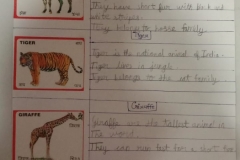 They have short fur with black and
white stripes.
Zebra belongs to horse family.
Tiger
TIGER
Tiger is the national animal of India.
Tiger lives in jungle.
Tiger belongs to the cat family.
Giraffe
GIRAFFE
Giraffe are the tallest animal in
The world.
They can run fast for a short